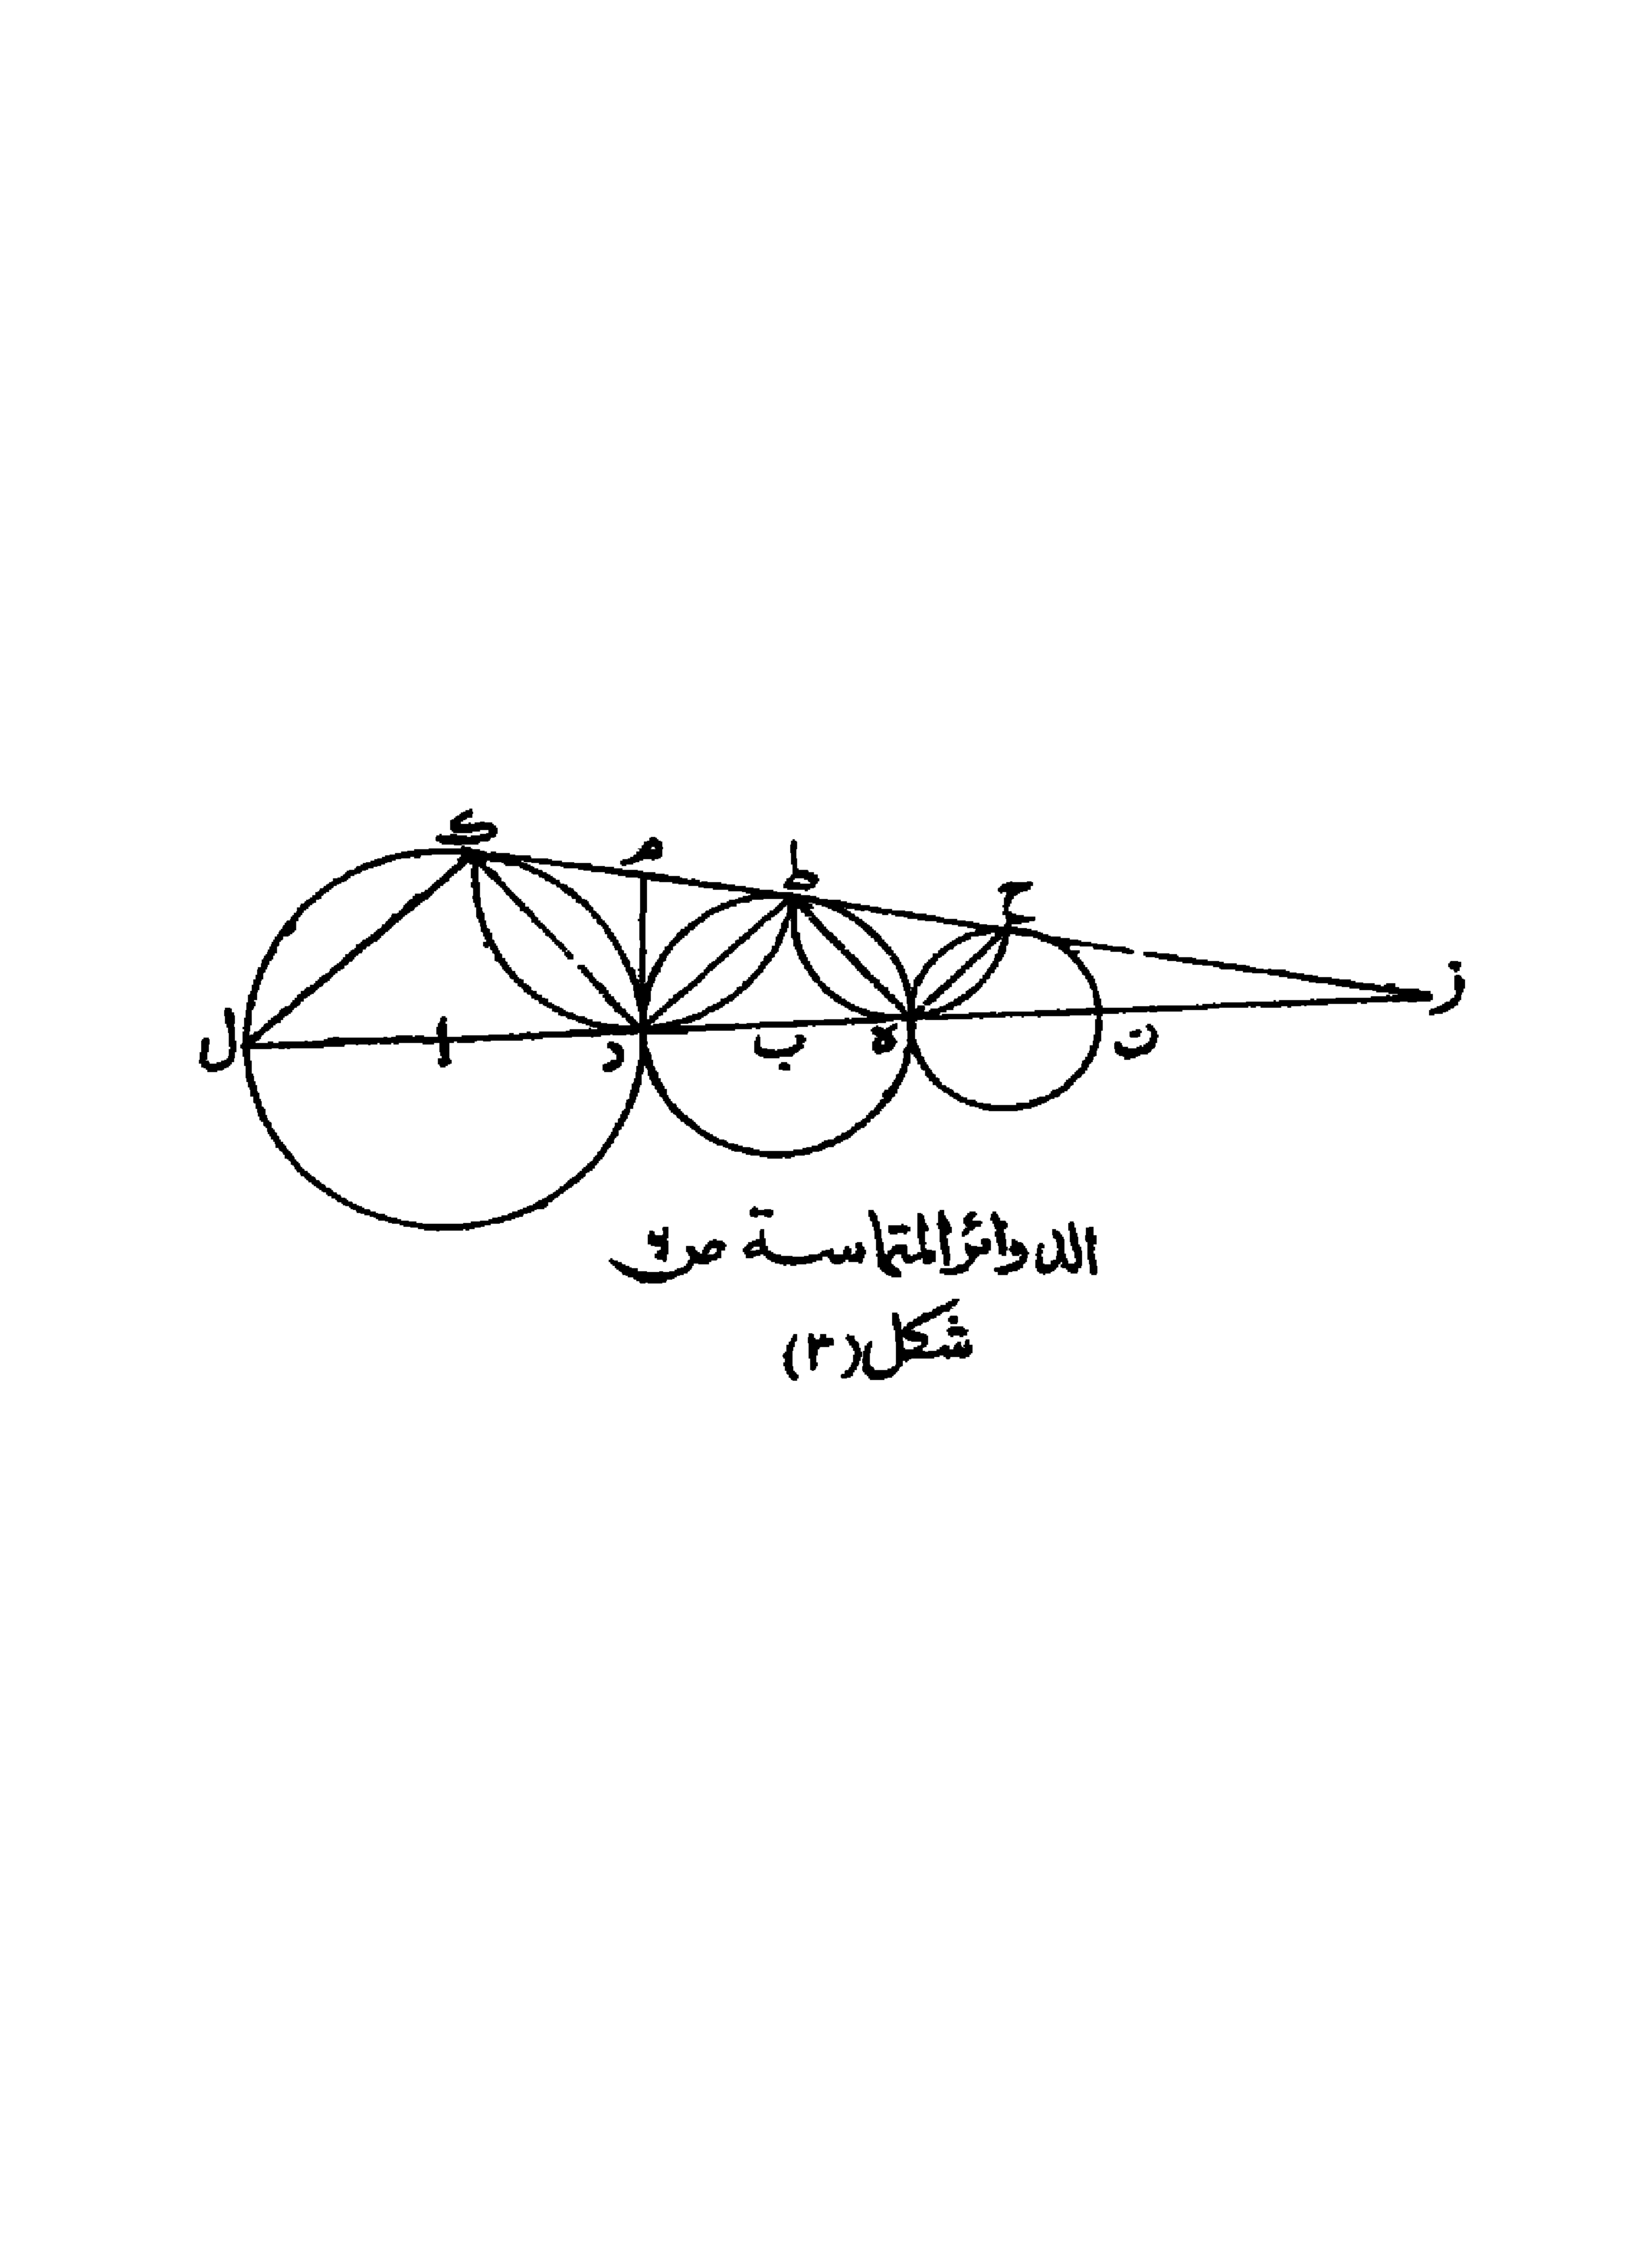 ك م ط ح ز
ل ا د ب ه ن
الدوائر المتماسة ص
شكل (٣)